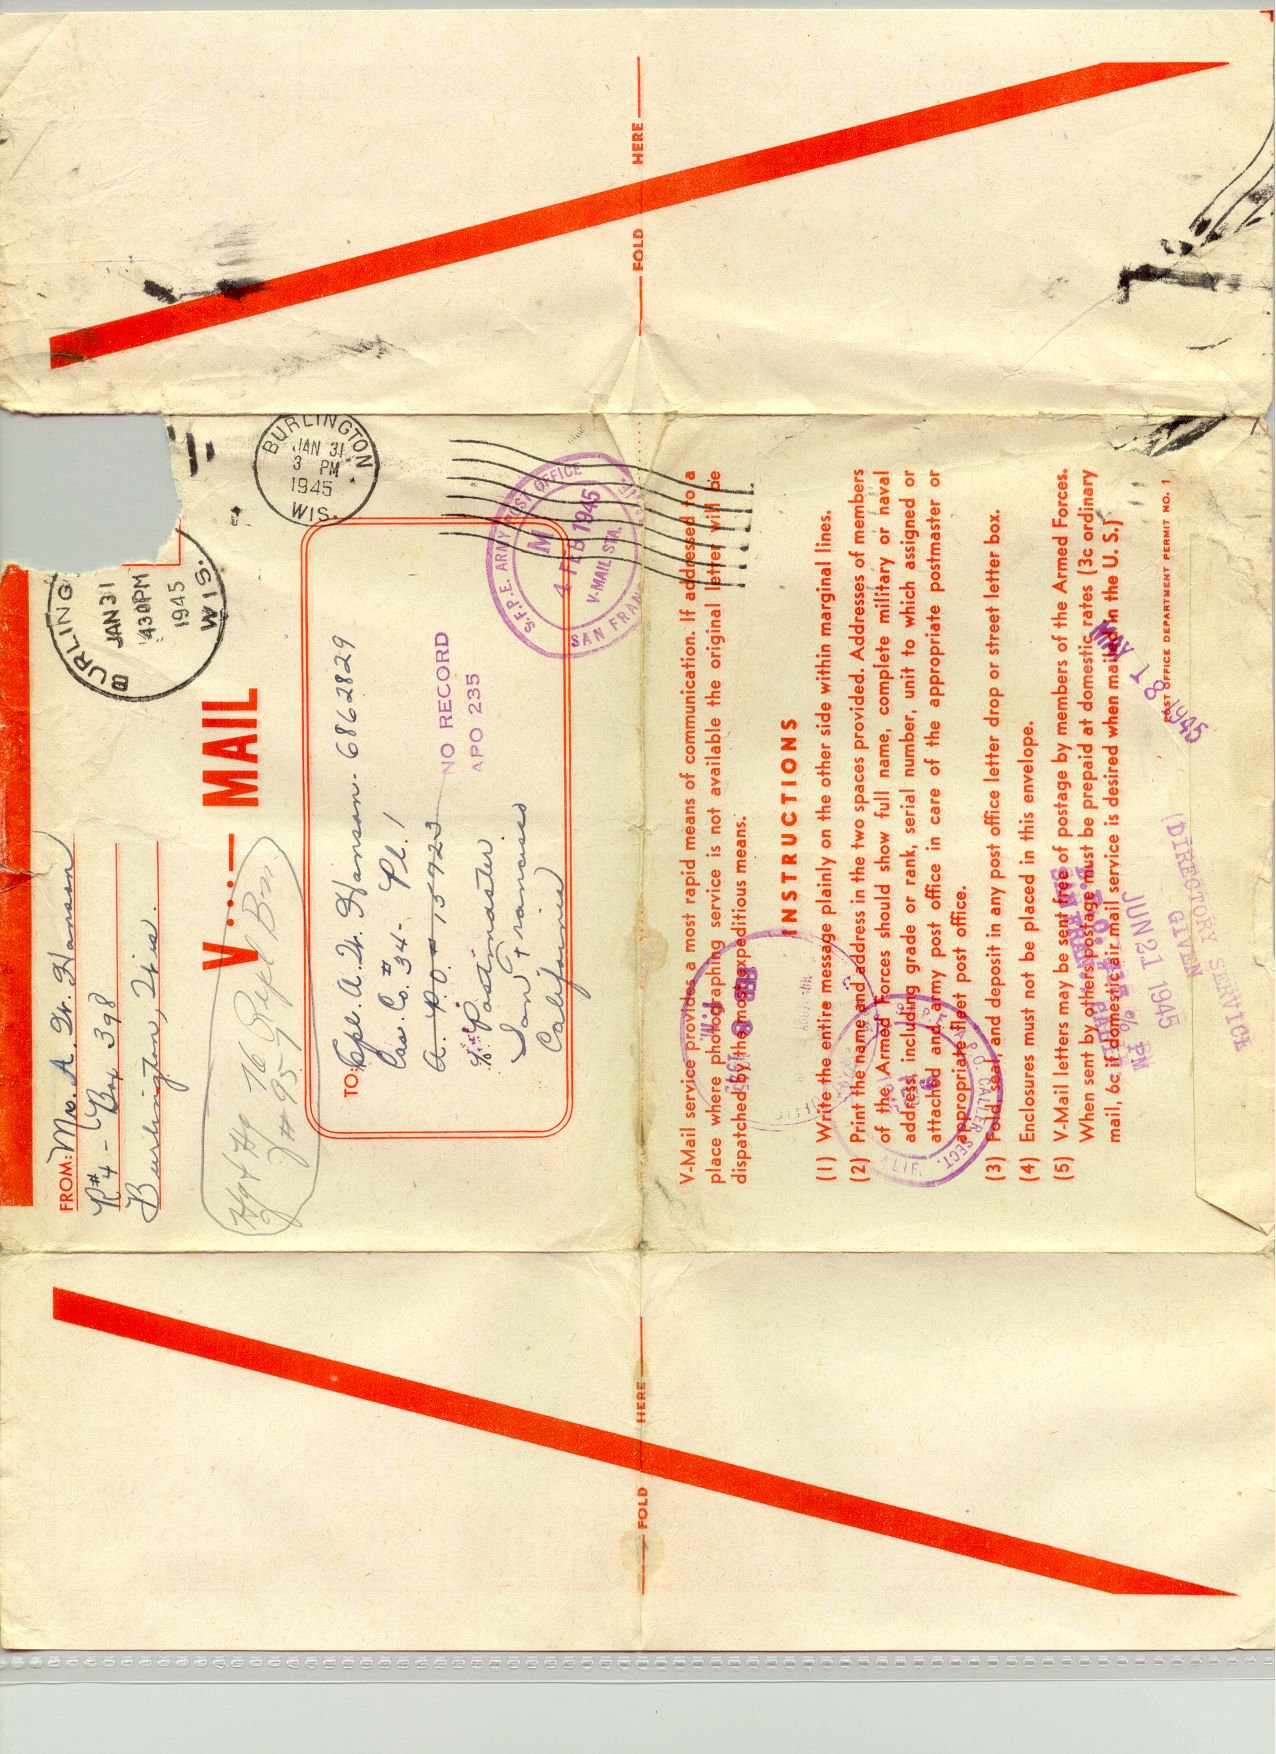 FOLD HERE
FROM: Mrs. A. W. Hanson
R#4 - Box 398
Burlington, Wis.
BURLING
JAN 31
430PM
1945
WIS.
V...— MAIL
BURLINGTON
JAN 31
3 PM
1945
WIS.
Hq & Hq 76 Repl Bn.
#95
TO: Cpl. A. W. Hanson - 6862829
Cas. Co. #34 - Pl. 1
A.P.O. 15923
℅ Postmaster
San Francisco
California
NO RECORD
APO 235
S.F.P.E. ARMY POST OFFICE
M
4 FEB 1945
V-MAIL STA.
SAN FRAN
V-Mail service provides a most rapid means of communication. If addressed to a
place where photographing service is not available the original letter will be
dispatched by the most expeditious means.
INSTRUCTIONS
(1) Write the entire message plainly on the other side within marginal lines.
(2) Print the name and address in the two spaces provided. Addresses of members
of the Armed Forces should show full name, complete military or naval
address, including grade or rank, serial number, unit to which assigned or
attached and army post office in care of the appropriate postmaster or
appropriate fleet post office.
(3) Fold, seal, and deposit in any post office letter drop or street letter box.
(4) Enclosures must not be placed in this envelope.
(5) V-Mail letters may be sent free of postage by members of the Armed Forces.
When sent by others postage must be prepaid at domestic rates (3c ordinary
mail, 6c if domestic air mail service is desired when mailed in the U. S.)
POST OFFICE DEPARTMENT PERMIT NO. 1
MAY 18 1945
A.P.O. CALLER SECT.
CALIF.
JUN 21 1945
DIRECTORY SERVICE
GIVEN
FOLD HERE